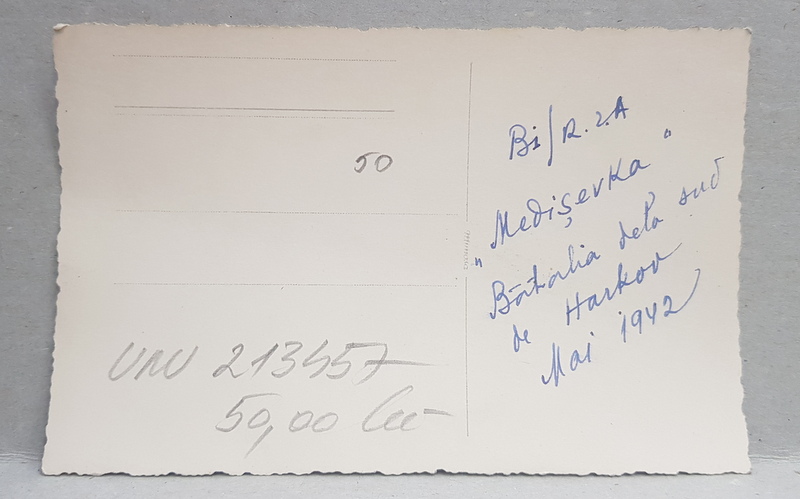 50
UNU 213457
50,00 lei
Bi/R.2.A
„Medișevka"
Bătalia dela sud
de Harkov
Mai 1942